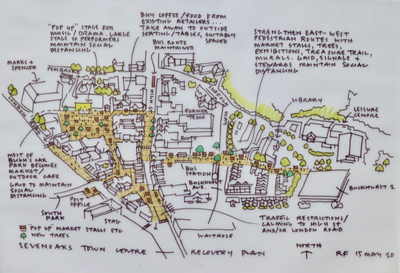 "POP UP" STAGE FOR
MUSIC / DRAMA. LARGE
STAGE SO PERFORMERS
MAINTAIN SOCIAL
DISTANCING
BUY COFFEE/FOOD FROM
EXISTING RETAILERS...
TAKE AWAY TO OUTSIDE
SEATING/TABLES, SUITABLY
SPACED
BUS ROUTE
MAINTAINED
STRENGTHEN EAST-WEST
PEDESTRIAN ROUTES WITH
MARKET STALLS, TREES,
EXHIBITIONS, TREASURE TRAIL,
MURALS. GRID, SIGNAGE +
STEWARDS MAINTAIN SOCIAL
DISTANCING
MARKS +
SPENCER
FORMER
TESCO
LIBRARY
LEISURE
CENTRE
BOOTS
MOST OF
BLIGH'S CAR
PARK BECOMES
MARKET/
OUTDOOR CAFE
GRID TO MAINTAIN
SOCIAL
DISTANCING
BUS
STATION
BUCKHURST
AVE.
BUCKHURST 2
POST
OFFICE
SOUTH
PARK
STAG
WAITROSE
TRAFFIC RESTRICTIONS/
CALMING TO HIGH ST
AND/OR LONDON ROAD
"POP UP" MARKET STALLS ETC
NEW TREES
SEVENOAKS TOWN CENTRE - RECOVERY PLAN
NORTH
RF 15 MAY 20